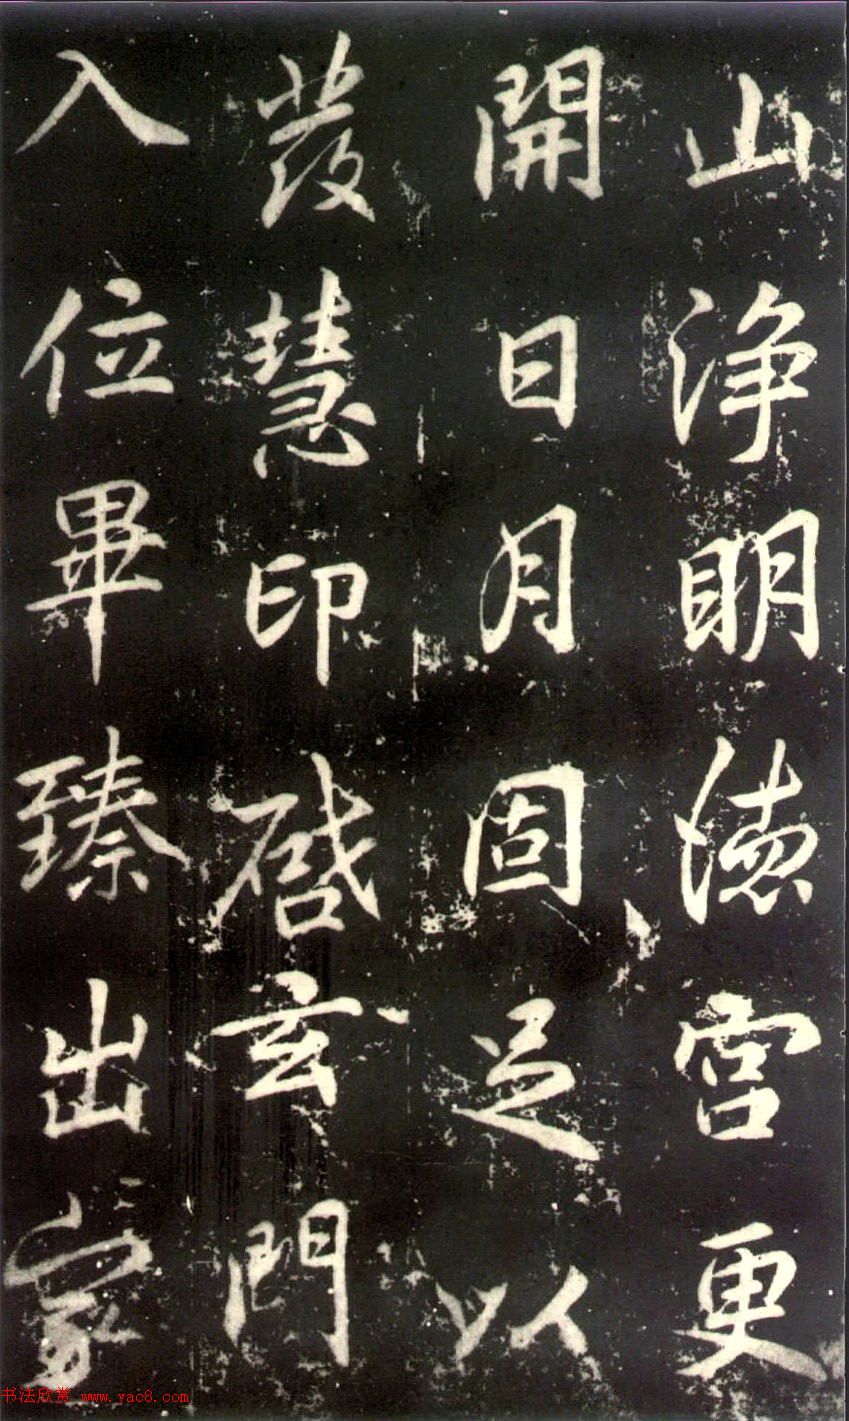 山浄明徳宫更
開日月固足以
發慧印啓玄門
入位畢臻出家
书法欣赏 www.yac8.com